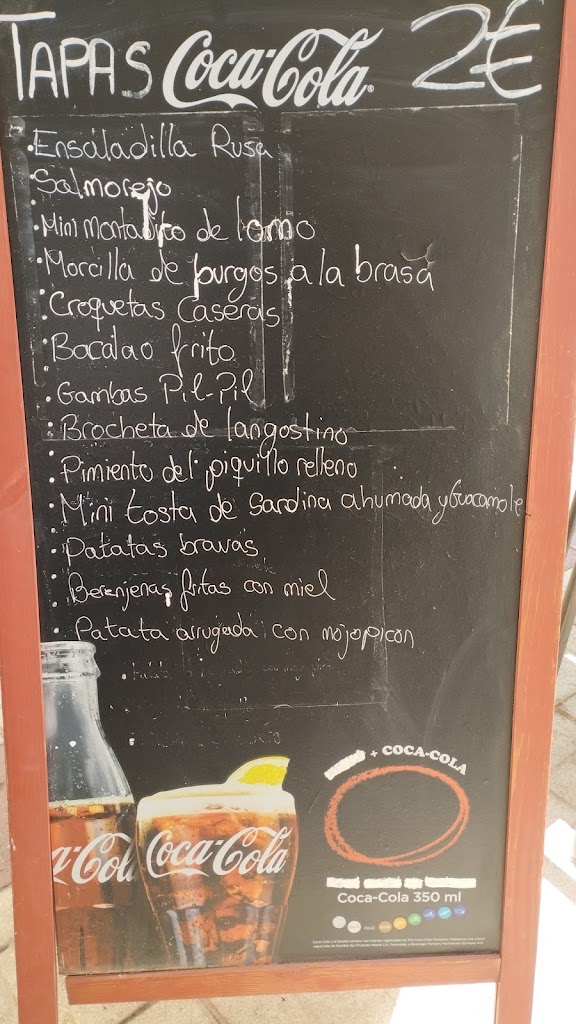 TAPAS Coca-Cola 2€
·Ensaladilla Rusa
·Salmorejo
·Mini montadito de lomo
·Morcilla de burgos a la brasa
·Croquetas Caseras
·Bacalao frito
·Gambas Pil-Pil
·Brocheta de langostino
·Pimiento del piquillo relleno
·Mini tosta de Sardina ahumada y Guacamole
·Patatas bravas
·Berenjenas fritas con miel
·Patata arrugada con mojopicon
+ COCA-COLA
Coca-Cola
Coca-Cola 350 ml